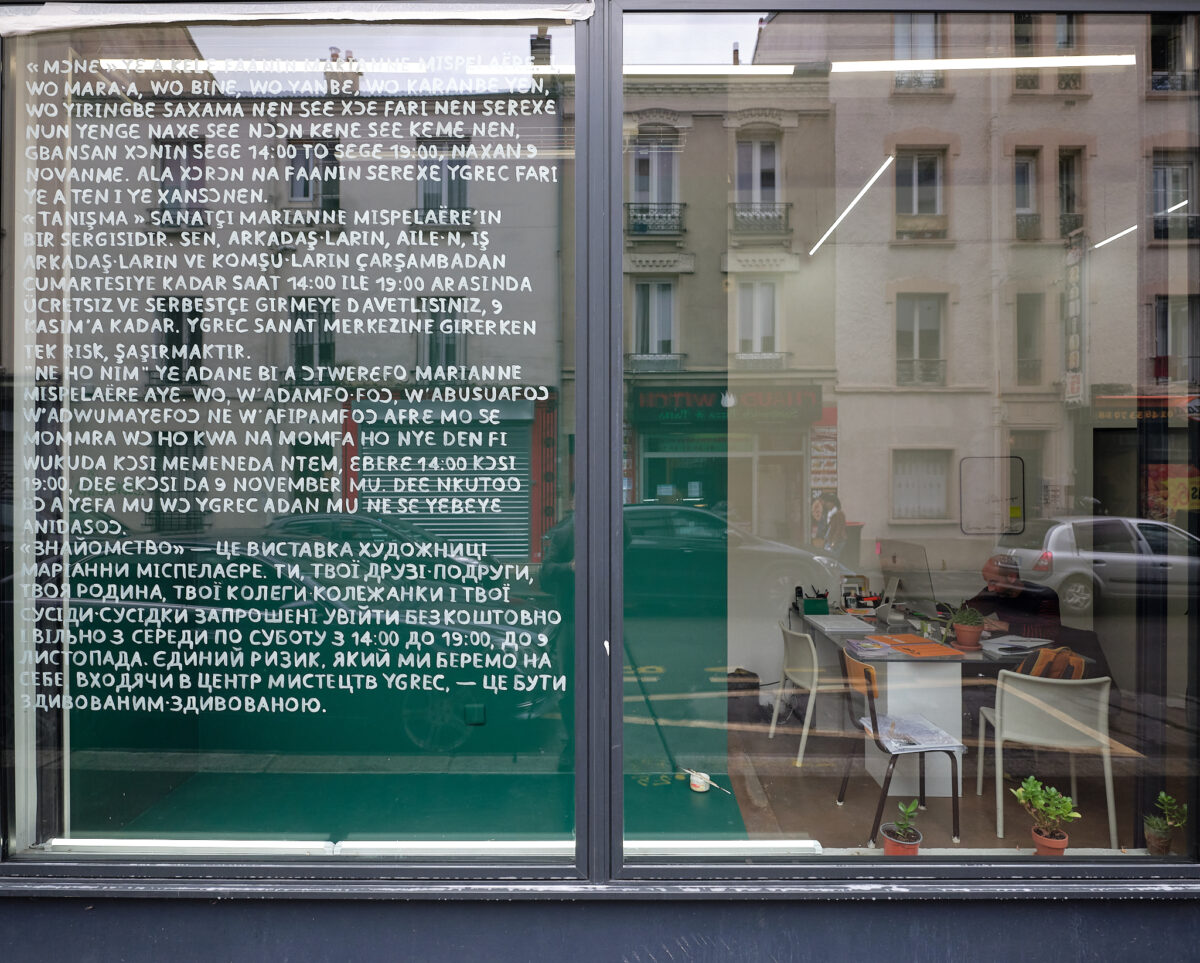 « MƆNE » YE A KELE FAANIN MARIANNE MISPELAËRE. I
WO MARA·A, WO BINE, WO YANBE, WO KARANBE YEN,
WO YIRINGBE SAXAMA NEN SEE XƆE FARI NEN SEREXE
NUN YENGE NAXE SEE NƆƆN KENE SEE KEME NEN,
GBANSAN XƆNIN SEGE 14:00 TO SEGE 19:00, NAXAN 9
NOVANME. ALA XƆRƆN NA FAANIN SEREXE YGREC FARI
YE A TEN I YE XANSƆNEN.
« TANIŞMA » SANATÇI MARIANNE MISPELAËRE'IN
BIR SERGISIDIR. SEN, ARKADAŞ·LARIN, AILE·N, IŞ
ARKADAŞ·LARIN VE KOMŞU·LARIN ÇARŞAMBADAN
CUMARTESIYE KADAR SAAT 14:00 ILE 19:00 ARASINDA
ÜCRETSIZ VE SERBESTÇE GIRMEYE DAVETLISINIZ, 9
KASIM'A KADAR. YGREC SANAT MERKEZINE GIRERKEN
TEK RISK, ŞAŞIRMAKTIR.
"NE HO NIM" YƐ ADANE BI A ƆTWERƐFO MARIANNE
MISPELAËRE AYE. WO, W'ADAMFO·FOƆ, W'ABUSUAFOƆ
W'ADWUMAYƐFOƆ NE W'AFIPAMFOƆ AFRE MO SE
MOMMRA WƆ HO KWA NA MOMFA HO NYE DEN FI
WUKUDA KƆSI MEMENEDA NTEM, ƐBERƐ 14:00 KƆSI
19:00, DEE ƐKƆSI DA 9 NOVEMBER MU. DEE NKUTOO
ƐƆ A YƐFA MU WƆ YGREC ADAN MU NE SE YƐBƐYƐ
ANIDASOƆ.
«ЗНАЙОМСТВО» — ЦЕ ВИСТАВКА ХУДОЖНИЦІ
МАРІАННИ МІСПЕЛАЄРЕ. ТИ, ТВОЇ ДРУЗІ·ПОДРУГИ,
ТВОЯ РОДИНА, ТВОЇ КОЛЕГИ·КОЛЕЖАНКИ І ТВОЇ
СУСІДИ·СУСІДКИ ЗАПРОШЕНІ УВІЙТИ БЕЗКОШТОВНО
І ВІЛЬНО З СЕРЕДИ ПО СУБОТУ З 14:00 ДО 19:00, ДО 9
ЛИСТОПАДА. ЄДИНИЙ РИЗИК, ЯКИЙ МИ БЕРЕМО НА
СЕБЕ, ВХОДЯЧИ В ЦЕНТР МИСТЕЦТВ YGREC, — ЦЕ БУТИ
ЗДИВОВАНИМ·ЗДИВОВАНОЮ.